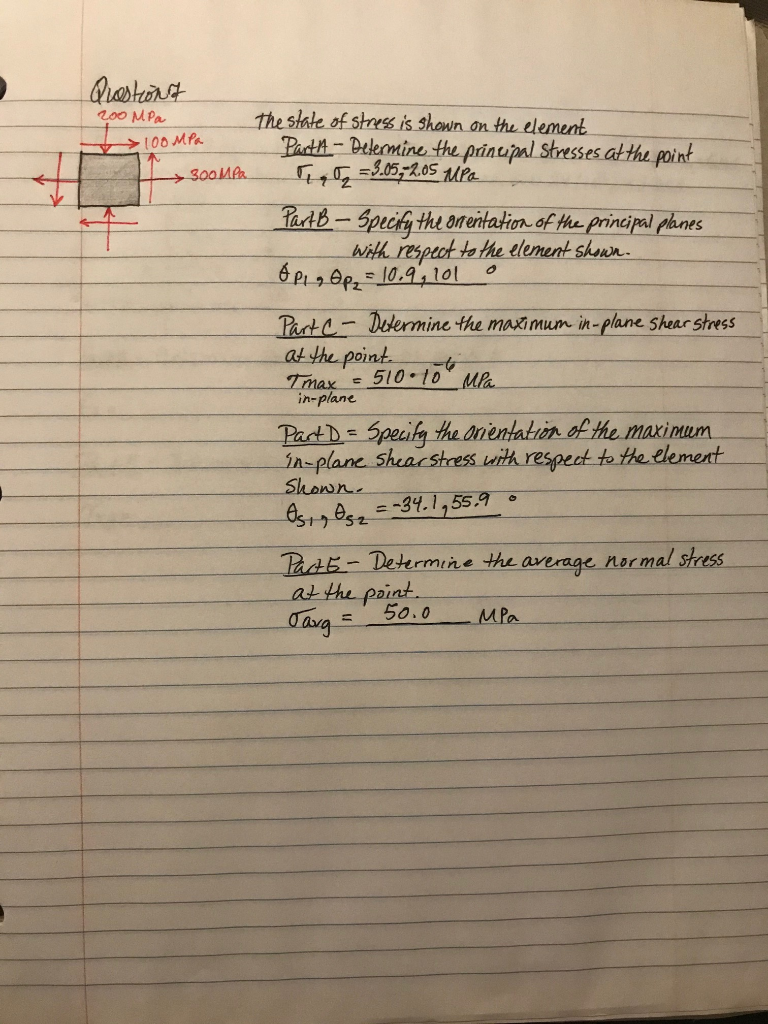 Question 7
200 MPa
100 MPa
300 MPa
The state of stress is shown on the element
Part A - Determine the principal stresses at the point
σ1, σ2 = 3.05, -2.05 MPa
Part B - Specify the orientation of the principal planes
with respect to the element shown.
θP1, θP2 = 10.9, 101 °
Part C - Determine the maximum in-plane shear stress
at the point.
τmax = 510 · 10^-6 MPa
in-plane
Part D = Specify the orientation of the maximum
in-plane shear stress with respect to the element
Shown.
θS1, θS2 = -34.1, 55.9 °
Part E - Determine the average normal stress
at the point.
σavg = 50.0 MPa